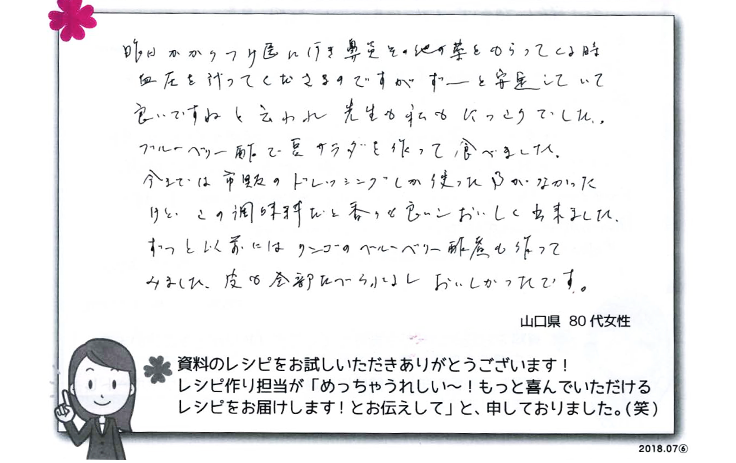 昨日かかりつけ医に行き鼻炎その他の薬をもらってくる時
血圧を計ってくださるのですがずーと安定していて
良いですねと云われ先生も私もにっこりでした。
ブルーベリー酢で豆サラダを作って食べました。
今までは市販のドレッシングしか使った事がなかった
けど、この調味料だと香りも良いしおいしく出来ました。
ずっと以前にはリンゴのブルーベリー酢煮も作って
みました、皮も全部たべられるし おいしかったです。
山口県 80代女性
資料のレシピをお試しいただきありがとうございます！
レシピ作り担当が「めっちゃうれしい～！もっと喜んでいただける
レシピをお届けします！とお伝えして」と、申しておりました。（笑）
2018.07⑥